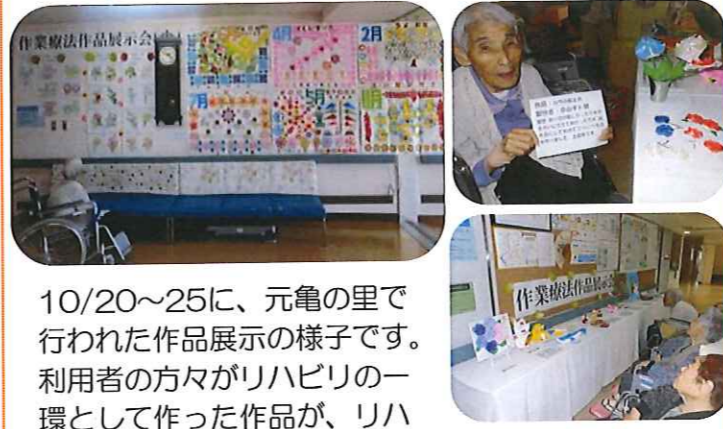 作業療法作品展示会
4月
2月
7月
5月
作業療法作品展示会
10/20～25に、元亀の里で
行われた作品展示の様子です。
利用者の方々がリハビリの一
環として作った作品が、リハ